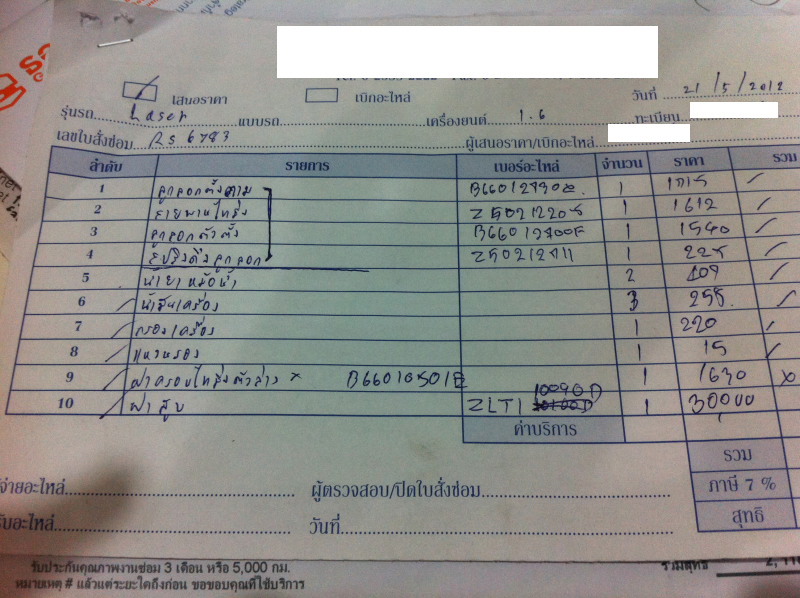 เสนอราคา เบิกอะไหล่ วันที่ 21/5/2012
รุ่นรถ Laser แบบรถ เครื่องยนต์ 1.6 ทะเบียน
เลขใบสั่งซ่อม RS 6783 ผู้เสนอราคา/เบิกอะไหล่
ลำดับ รายการ เบอร์อะไหล่ จำนวน ราคา รวม
1 ลูกลอกตั้งตาม 1
2 สายพานไทม์มิ่ง Z50212205 1 1612
3 ลูกลอกตัวตั้ง B66012700F 1 1540
4 สปริงดึงลูกลอก Z50212711 1 225
5 น้ำยาหม้อน้ำ 2 409
6 น้ำมันเครื่อง 3 255
7 กรองเครื่อง 1 220
8 แหวนรอง 1 15
9 ฝาครอบไทม์มิ่งตัวล่าง x B66010501E 1 1630 x
10 ฝาสูบ ZLT1 10090D 1 30000
ค่าบริการ
รวม
ภาษี 7 %
สุทธิ
จ่ายอะไหล่ ผู้ตรวจสอบ/ปิดใบสั่งซ่อม
รับอะไหล่ วันที่
รับประกันคุณภาพงานซ่อม 3 เดือน หรือ 5,000 กม.
หมายเหตุ # แล้วแต่ระยะใดถึงก่อน ขอขอบคุณที่ใช้บริการ
รวมสุทธิ